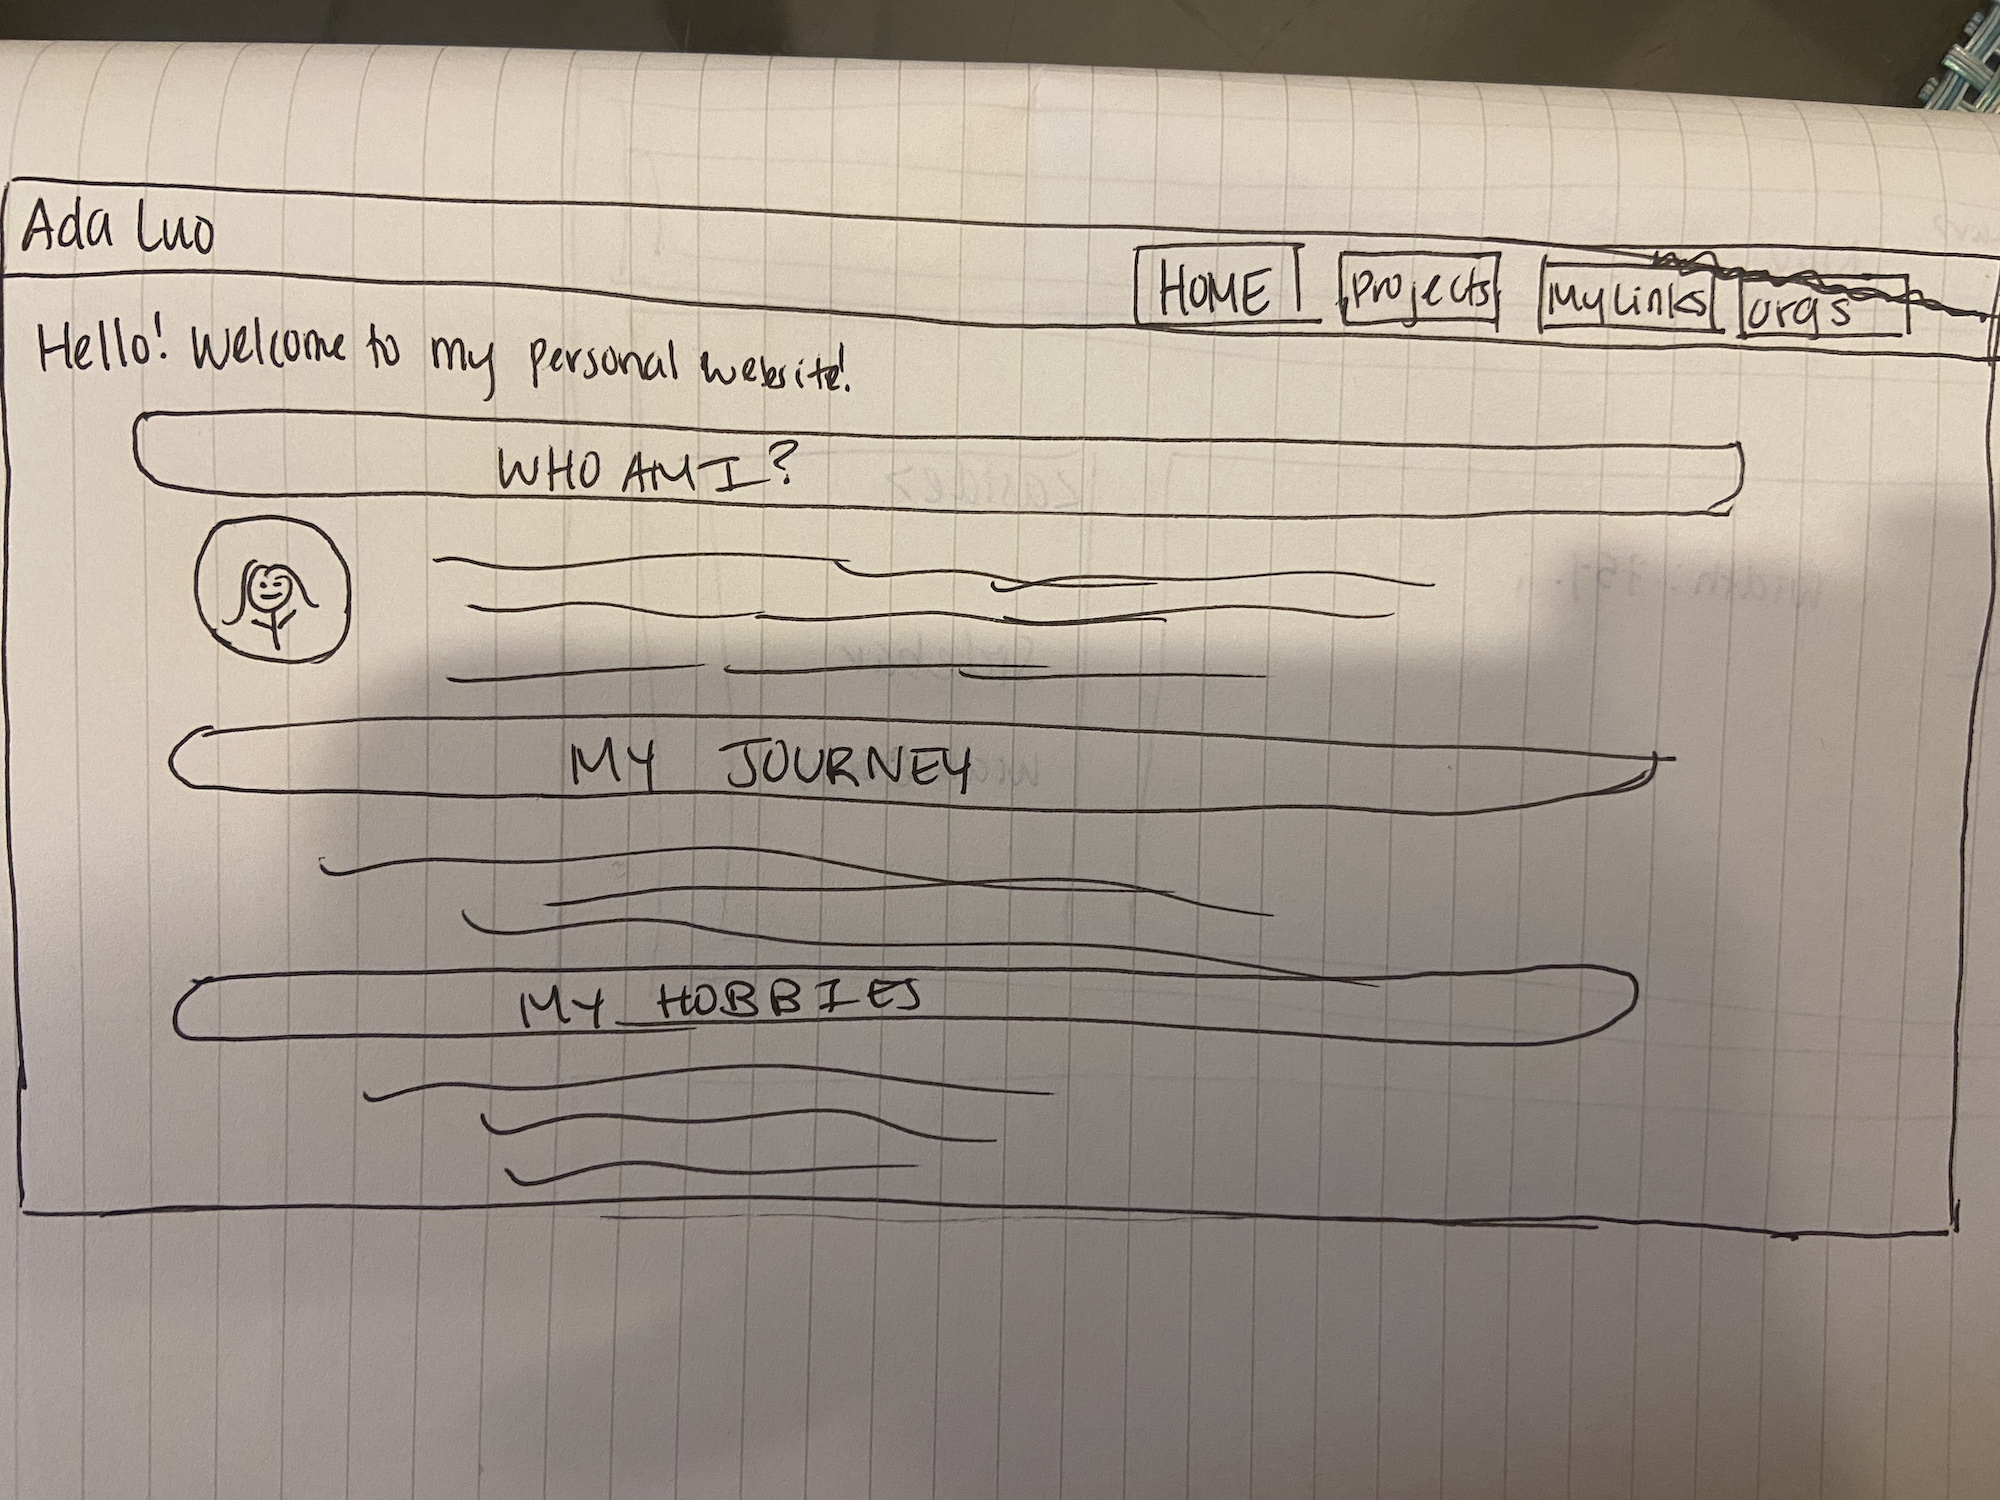 Ada Luo
HOME Projects My Links orgs
Hello! Welcome to my personal website!
WHO AM I?
MY JOURNEY
MY HOBBIES